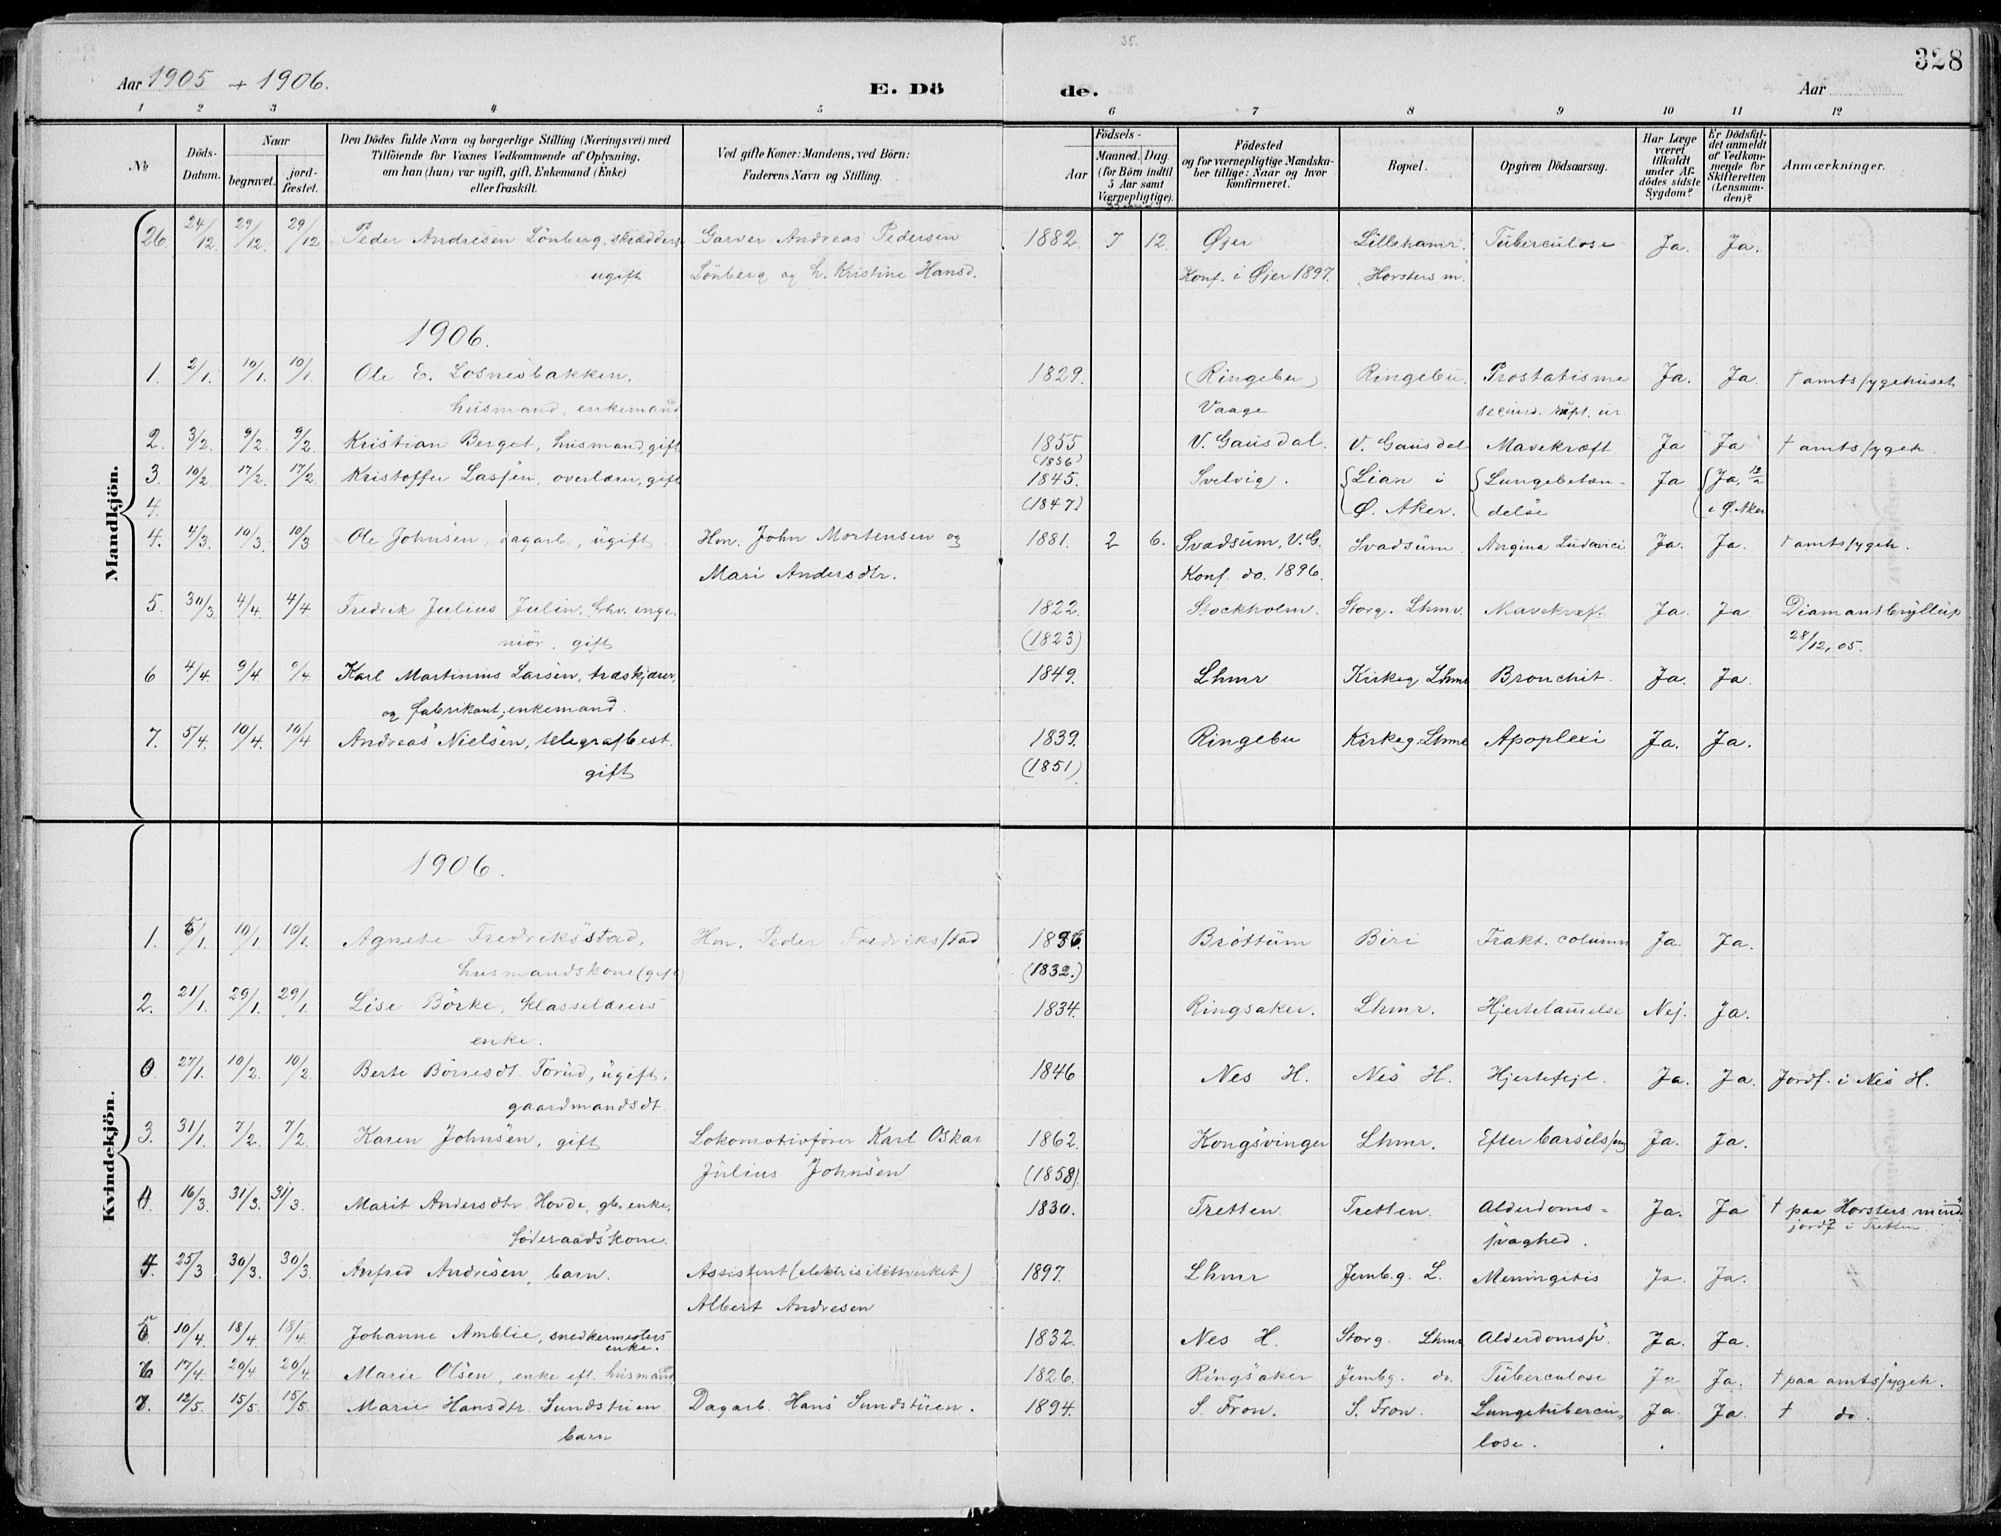 35.
328
Aar 1905 + 1906. E. Dö de. Aar
1 2 3 4 5 6 7 8 9 10 11 12
No
Döds-Datum.
Naar
begravet.
jord-fæstet.
Den Dödes fulde Navn og borgerlige Stilling (Næringsvei) med
Tilföiende for Voxnes Vedkommende af Oplysning,
om han (hun) var ugift, gift, Enkemand (Enke)
eller fraskilt.
Ved gifte Koner: Mandens, ved Börn:
Faderens Navn og Stilling.
Födsels-
Aar
Maaned. Dag
(for Börn indtil
5 Aar samt
Værnepligtige).
Födested
og for værnepligtige Mandska-
ber tillige: Naar og hvor
konfirmeret.
Bopæl.
Opgiven Dödsaarsag.
Har Læge
været
tilkaldt
under Af-
dödes sidste
Sygdom?
Er Dödsfal-
det anmeldt
af Vedkom-
mende for
Skifteretten
(Lensman-
den)?
Anmærkninger.
Mandkjön.
26. 24/12 29/12 29/12 Peder Andresen Lönberg, skrædders. Garver Andreas Pedersen 1882. 7 12. Øjer Lillehamr. Tuberculose Ja. Ja.
ugift Lönberg og h. Kristine Hansd. Konf. i Øjer 1897. Horsters m.
1906.
1. 2/1. 10/1. 10/1. Ole E. Losnesbakken, 1829. (Ringebu) Ringebu. Prostatisme Ja. Ja. † amtssygehuset
husmand, enkemand Vaage secund. rupt. ur.
2. 3/2. 9/2. 9/2. Kristian Berget, husmand, gift 1855 V. Gausdal. V. Gausdal Mavekræft Ja Ja † amtssygeh.
(1856)
3. 10/2. 17/2. 17/2 Kristoffer Lassen, overlærer, gift 1845. Svelvig. Lian i Lungebetæn- Ja Ja, 12/2
4. (1847) Ø. Aker. delse i Ø. Aker
4. 4/3. 10/3. 10/3 Ole Johnsen, dagarb., ugift Hm. John Mortensen og 1881. 2 6. Svadsum, V.G. Svadsum. Angina Ludovici Ja. Ja. † amtssygeh.
Mari Andersdtr. Konf. do. 1896.
5. 30/3. 4/4. 4/4 Fredrik Julius Julin, fhv. inge- 1822. Stockholm. Storg. Lhmr. Mavekræft. Ja. Ja Diamantbryllup
niör, gift (1823) 28/12, 05.
6 4/4. 9/4 9/4 Karl Martinius Larsen, træskjærer, 1849. Lhmr Kirkeg. Lhmr Bronchit. Ja. Ja.
og fabrikant, enkemand.
7. 5/4. 10/4. 10/4 Andreas Nielsen, telegrafbest. 1839. Ringebu Kirkeg. Lhmr Apoplexi Ja. Ja.
gift (1851)
Kvindekjön.
1906.
1. 5/1. 10/1 10/1. Agnete Fredriksstad, Hm. Peder Fredriksstad 1836. Bröttum Biri Frakt. column Ja. Ja.
husmandskone (gift) (1832.)
2. 21/1. 29/1. 29/1. Lise Börke, klasselærers 1834. Ringsaker. Lhmr. Hjertelam̅else Nej. Ja.
enke.
0. 27/1. 10/2. 10/2. Berte Börresdt. Torud, ugift, 1846 Nes H. Nes H. Hjertefejl. Ja. Ja. Jordf. i Nes H.
gaardmandsdt.
3. 31/1. 7/2. 7/2. Karen Johnsen, gift Lokomotivförer Karl Oskar 1862. Kongsvinger Lhmr. Efter barselsseng Ja. Ja.
Julius Johnsen (1858)
0. 16/3. 31/3. 31/3. Marit Andersdtr. Hovde, gb. enke, 1830. Tretten. Tretten. Alderdoms- Ja. Ja † paa Horsters minde
föderaadskone. svaghed. jordf. i Tretten
4. 25/3 30/3. 30/3. Anfred Andresen, barn. Assistent (elektricitetsverket) 1897. Lhmr Jernb.g. L. Meningitis Ja Ja.
Albert Andresen
5. 10/4. 18/4 18/4 Johanne Amblie, snedkermesters 1832. Nes H. Storg. Lhmr Alderdomss. Ja. Ja.
enke.
6 17/4. 20/4 20/4 Marie Olsen, enke eft. husmand 1826. Ringsaker Jernbg. do. Tuberculose Ja Ja. † paa amtssygeh.
7. 12/5. 15/5. 15/5. Marie Hansdtr. Sundstuen Dagarb. Hans Sundstuen. 1894. S. Fron. S. Fron. Lungetubercu- Ja. Ja † do.
barn lose.